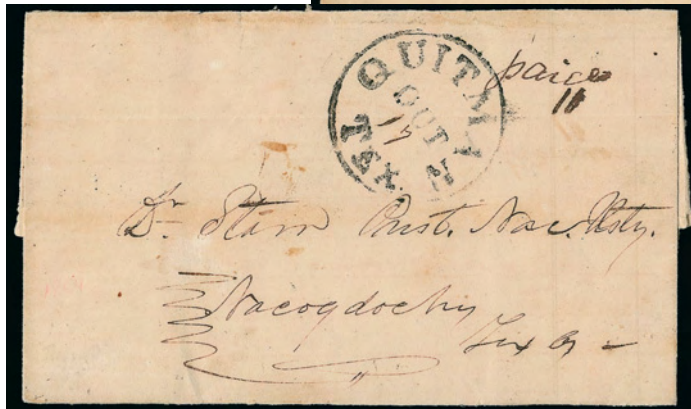 QUITMAN TEX.
OCT
15
paid
10
Dr. Starr Pust. Nac. Usty.
Nacogdoches
Texas